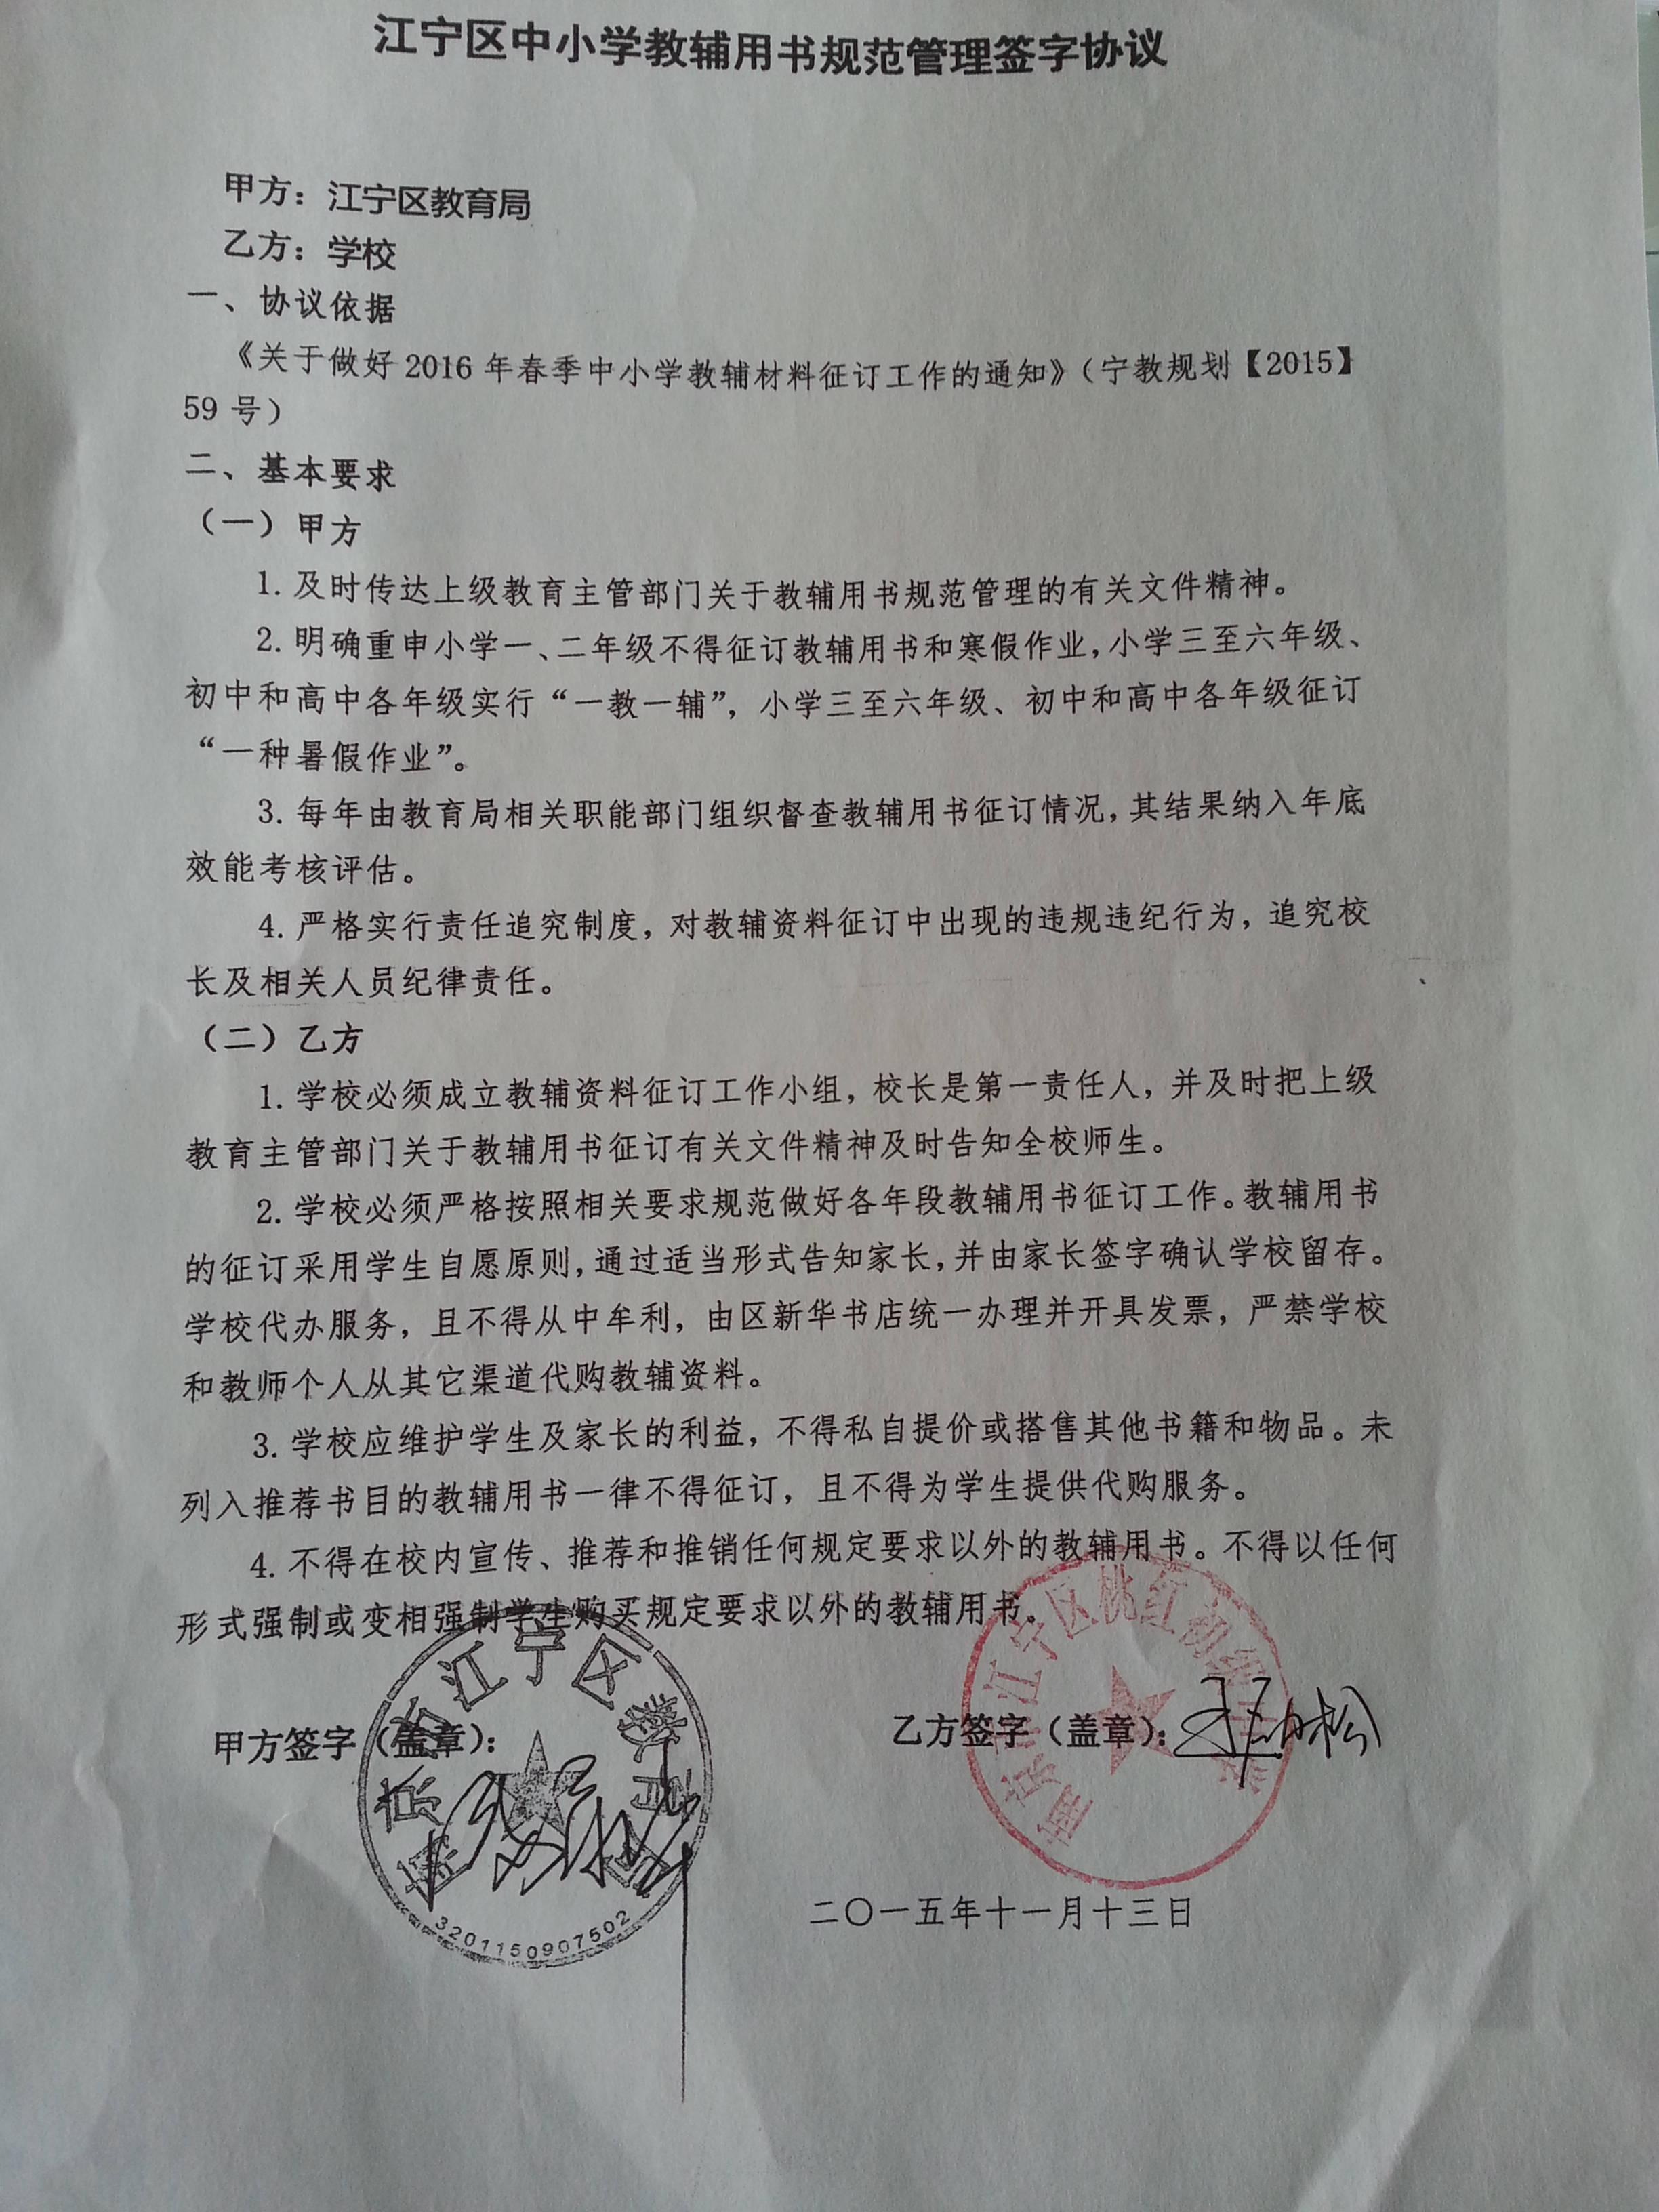 江宁区中小学教辅用书规范管理签字协议
甲方：江宁区教育局
乙方：学校
一、协议依据
《关于做好 2016 年春季中小学教辅材料征订工作的通知》（宁教规划【2015】
59 号）
二、基本要求
（一）甲方
1. 及时传达上级教育主管部门关于教辅用书规范管理的有关文件精神。
2. 明确重申小学一、二年级不得征订教辅用书和寒假作业，小学三至六年级、
初中和高中各年级实行“一教一辅”，小学三至六年级、初中和高中各年级征订
“一种暑假作业”。
3. 每年由教育局相关职能部门组织督查教辅用书征订情况，其结果纳入年底
效能考核评估。
4. 严格实行责任追究制度，对教辅资料征订中出现的违规违纪行为，追究校
长及相关人员纪律责任。
（二）乙方
1. 学校必须成立教辅资料征订工作小组，校长是第一责任人，并及时把上级
教育主管部门关于教辅用书征订有关文件精神及时告知全校师生。
2. 学校必须严格按照相关要求规范做好各年段教辅用书征订工作。教辅用书
的征订采用学生自愿原则，通过适当形式告知家长，并由家长签字确认学校留存。
学校代办服务，且不得从中牟利，由区新华书店统一办理并开具发票，严禁学校
和教师个人从其它渠道代购教辅资料。
3. 学校应维护学生及家长的利益，不得私自提价或搭售其他书籍和物品。未
列入推荐书目的教辅用书一律不得征订，且不得为学生提供代购服务。
4. 不得在校内宣传、推荐和推销任何规定要求以外的教辅用书。不得以任何
形式强制或变相强制学生购买规定要求以外的教辅用书。
甲方签字（盖章）：
南京市江宁区教育局
3201150907502
乙方签字（盖章）：
南京市江宁区桃红初级中学
二〇一五年十一月十三日